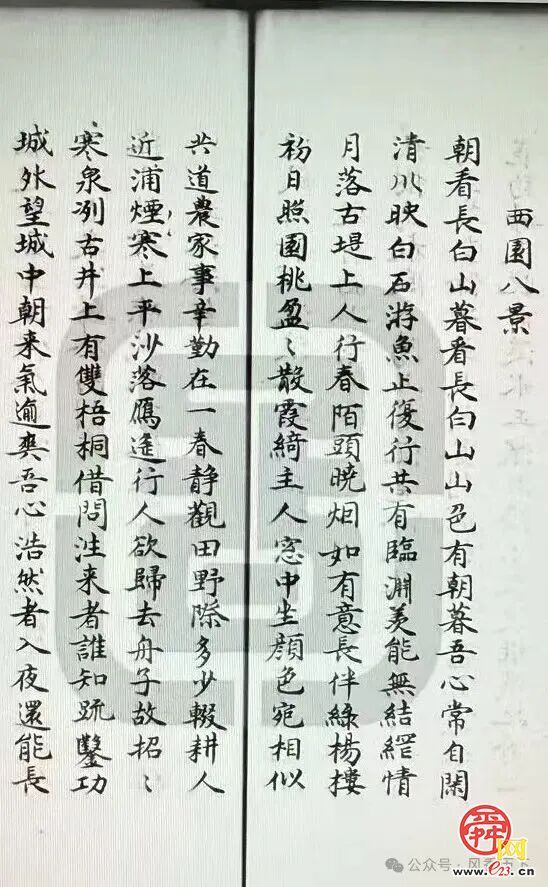 西園八景
朝看長白山暮看長白山山色有朝暮吾心常自閑
清川映白石游魚止復行共有臨淵羨能無結罾情
月落古堤上人行春陌頭曉烟如有意長伴綠楊樓
初日照園桃盈〻散霞綺主人窓中坐顔色宛相似
共道農家事辛勤在一春静觀田野際多少輟耕人
近浦煙寒上平沙落鴈遙行人欲歸去舟子故招〻
寒泉冽古井上有雙梧桐借問徃来者誰知疏鑿功
城外望城中朝来氣逾爽吾心浩然者入夜還能長
舜网
www.e23.cn
公众号·风香